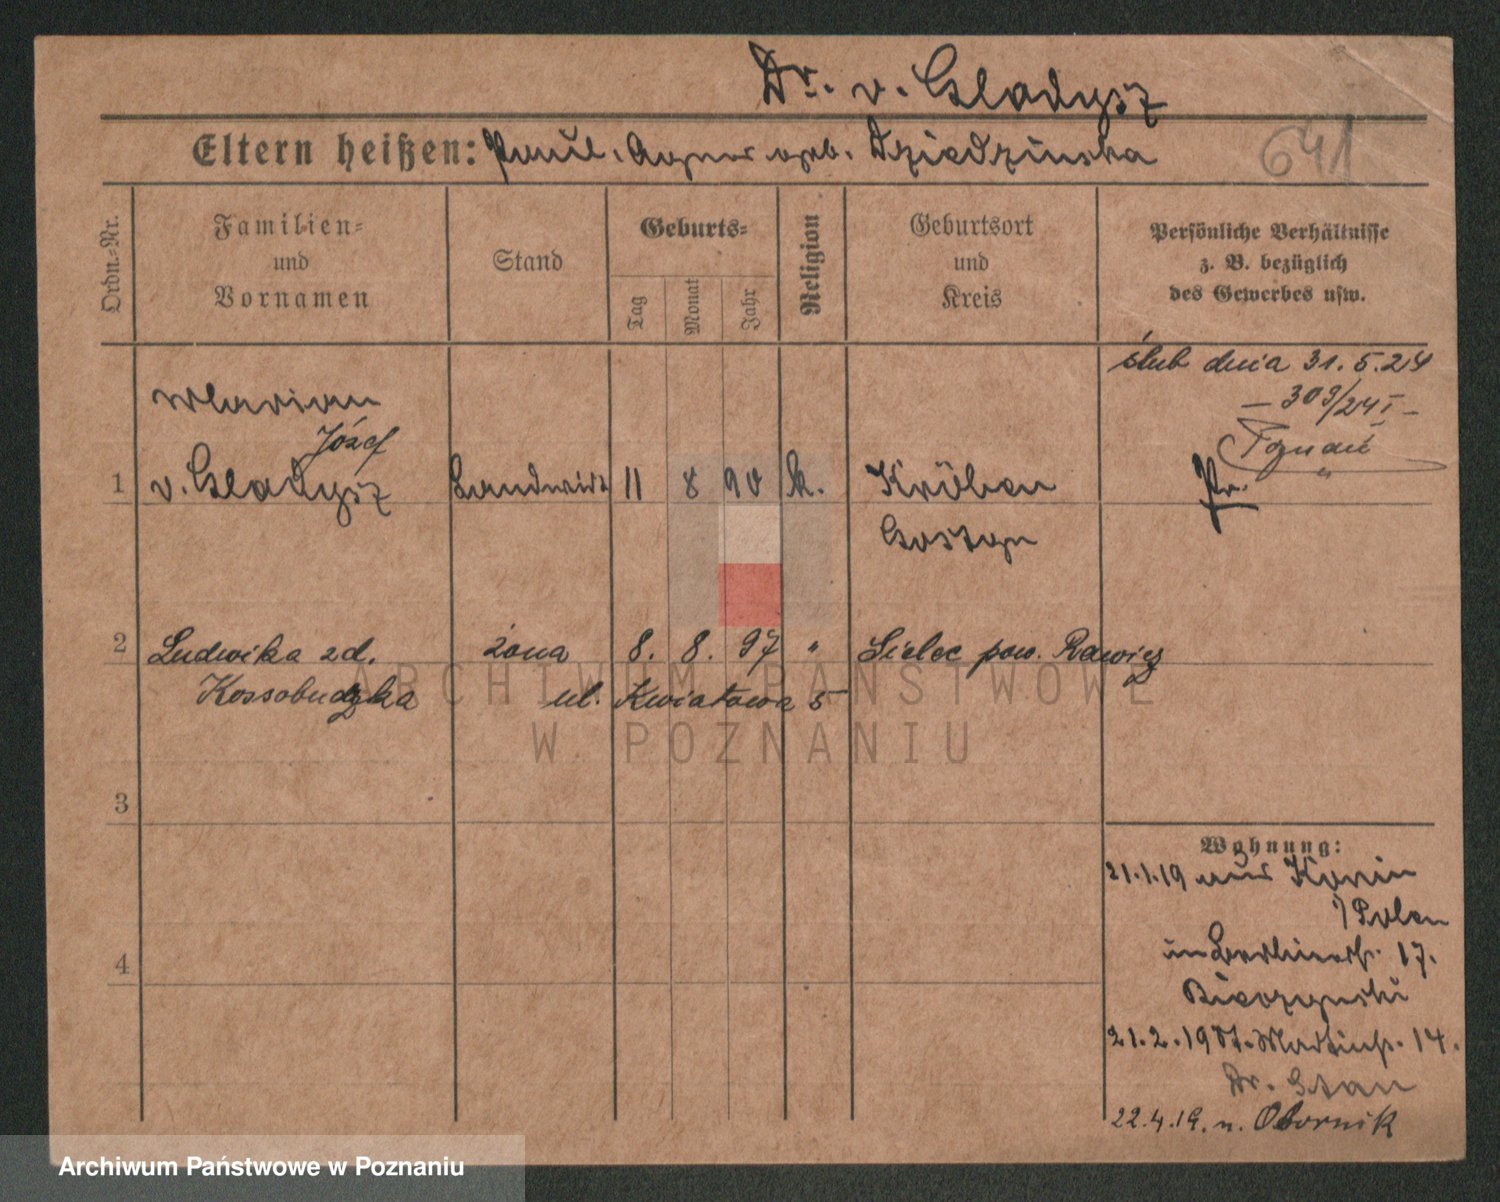 Dr. v. Gladysz
Eltern heißen: Paul. Agnes geb. Dziedzinska
641
Ordn.-Nr.
Familien-
und
Vornamen
Stand
Geburts-
Tag
Monat
Jahr
Religion
Geburtsort
und
Kreis
Persönliche Verhältnisse
z. B. bezüglich
des Gewerbes usw.
ślub dnia 31.5.24
— 309/24 I —
Poznań
Marian
Józef
1 v. Gladysz Landwirt 11 8 90 k. Kröben Pr.
Gostyn
2 Ludwika zd. żona 8. 8. 97 " Sielec pow. Rawicz
Kossobudzka ul. Kwiatowa 5
ARCHIWUM PAŃSTWOWE
W POZNANIU
3
4
Wohnung:
21.1.19 aus Konin
i/Polen
in Berlinerstr. 17.
21.2.19 St. Martinstr. 14.
Dr.
22.4.19. n. Obornik
Archiwum Państwowe w Poznaniu